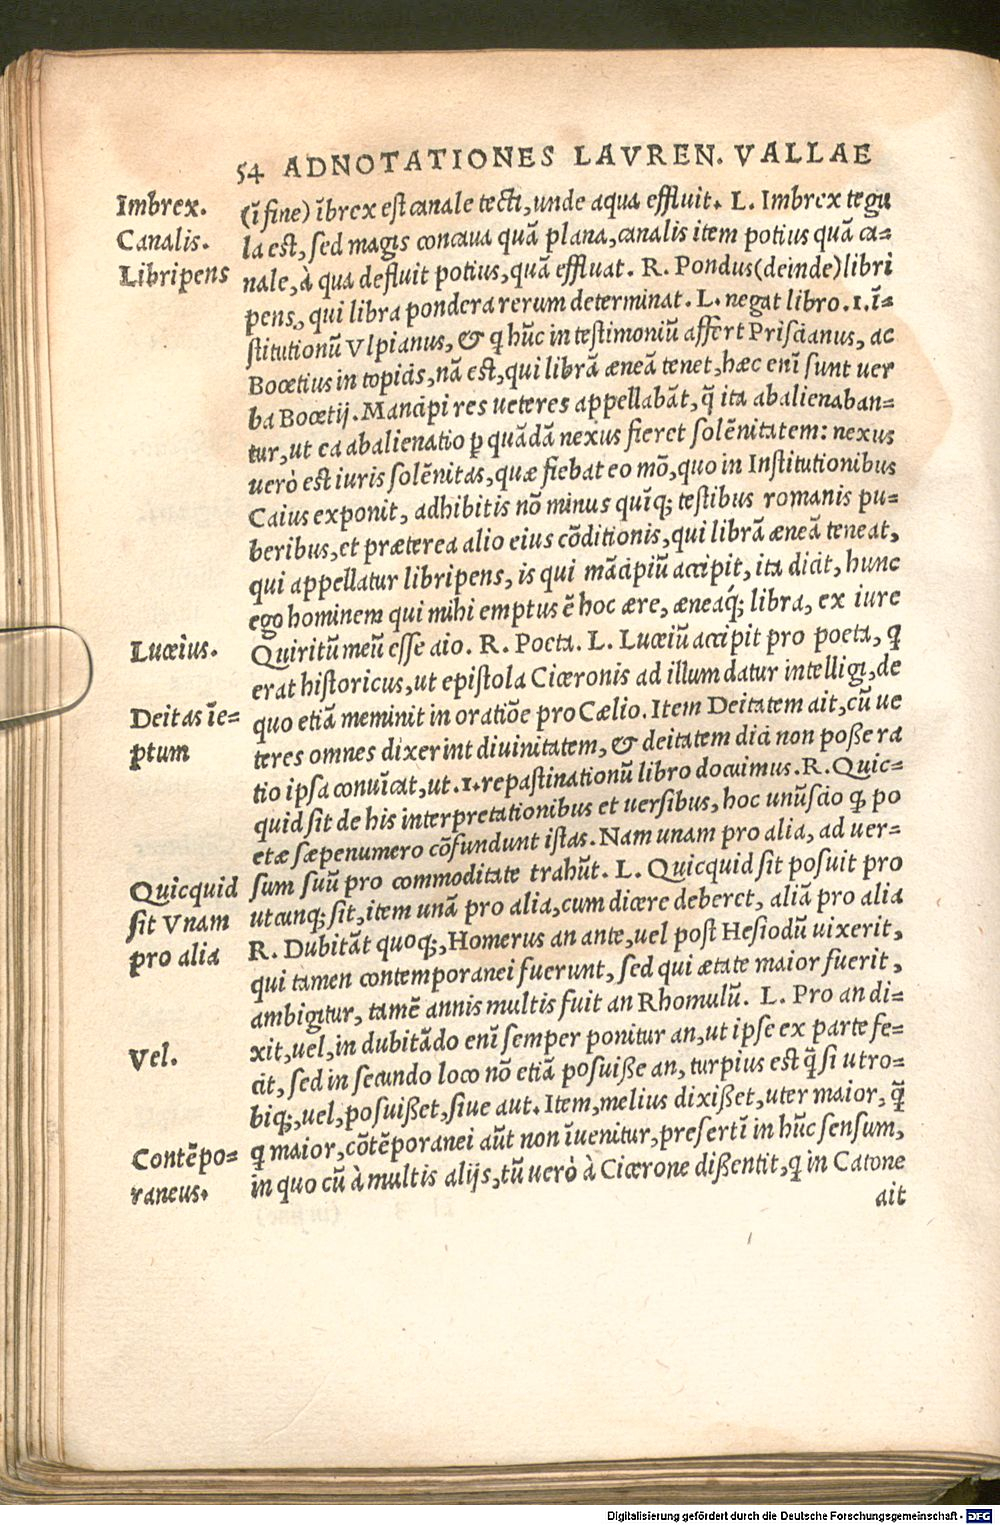 54 ADNOTATIONES LAVREN. VALLAE
Imbrex.
Canalis.
Libripens
(ĩ fine) ĩbrex est canale tecti, unde aqua effluit. L. Imbrex tegu
la est, sed magis concaua quã plana, canalis item potius quã ca=
nale, à qua defluit potius, quã effluat. R. Pondus (deinde) libri
pens, qui libra pondera rerum determinat. L. negat libro .1. ĩ=
stitutionũ Vlpianus, & ꝙ hũc in testimoniũ affert Priscianus, ac
Boœtius in topicis, nã est, qui librã æneã tenet, hæc enĩ sunt uer
ba Boœtij. Mancipi res ueteres appellabãt, q̃ ita abalienaban=
tur, ut ea abalienatio ꝑ quãdã nexus fieret solẽnitatem: nexus
uerò est iuris solẽnitas, quæ fiebat eo mõ, quo in Institutionibus
Caius exponit, adhibitis nõ minus quĩq; testibus romanis pu=
beribus, et præterea alio eius cõditionis, qui librã æneã teneat,
qui appellatur libripens, is qui mãcipiũ accipit, ita dicit, hunc
ego hominem qui mihi emptus ẽ hoc ære, æneaq́; libra, ex iure
Quiritũ meũ esse aio. R. Poeta. L. Lucciũ accipit pro poeta, ꝙ
erat historicus, ut epistola Ciceronis ad illum datur intelligi, de
quo etiã meminit in oratiõe pro Cælio. Item Deitatem ait, cũ ue
teres omnes dixerint diuinitatem, & deitatem dici non posse ra
tio ipsa conuĩcat, ut .1. repastinationũ libro docuimus. R. Quic=
quid sit de his interpretationibus et uersibus, hoc unũ scio ꝙ po
etæ sæpenumero cõfundunt istas. Nam unam pro alia, ad uer=
sum suũ pro commoditate trahũt. L. Quicquid sit posuit pro
utcunq; sit, item unã pro alia, cum dicere deberet, aliã pro alia
R. Dubitãt quoq;, Homerus an ante, uel post Hesiodũ uixerit,
qui tamen contemporanei fuerunt, sed qui ætate maior fuerit,
ambigitur, tamẽ annis multis fuit an Rhomulũ. L. Pro an di=
xit, uel, in dubitãdo enĩ semper ponitur an, ut ipse ex parte fe=
cit, sed in secundo loco nõ etiã posuisse an, turpius est q̃ si utro=
biq;, uel, posuisset, siue aut. Item, melius dixisset, uter maior, q̃
ꝙ maior, cõtẽporanei aũt non ĩuenitur, presertĩ in hũc sensum,
in quo cũ à multis alijs, tũ uerò à Cicerone dissentit, ꝙ in Catone
ait
Lucceius.
Deitas ĩe=
ptum
Quicquid
sit Vnam
pro alia
Vel.
Contẽpo=
raneus.
Digitalisierung gefördert durch die Deutsche Forschungsgemeinschaft - DFG